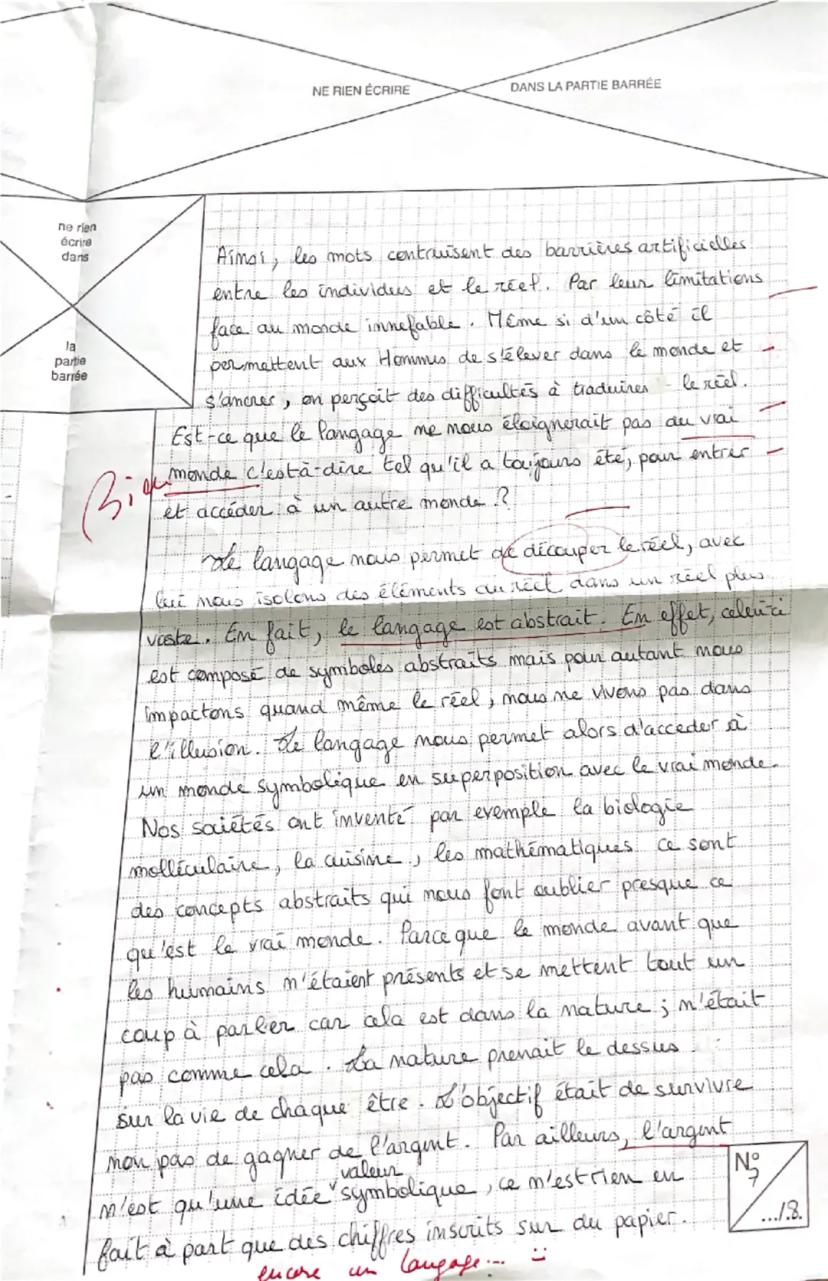 NE RIEN ÉCRIRE DANS LA PARTIE BARRÉE
ne rien
écrire
dans
la
partie
barrée
Ainsi, les mots contruisent des barrières artificielles
entre les individus et le réel. Par leur limitations
face au monde innefable. Même si d'un côté il
permettent aux Hommes de s'élever dans le monde et
s'ancrer, on perçoit des difficultés à traduires le réel.
Est-ce que le langage ne nous éloignerait pas du vrai
monde c'est-à-dire tel qu'il a toujours été, pour entrer
et accéder à un autre monde ?
Bien
Le langage nous permet de découper le réel, avec
lui nous isolons des éléments du réel dans un réel plus
vaste. En fait, le langage est abstrait. En effet, celui-ci
est composé de symboles abstraits mais pour autant nous
impactons quand même le réel, nous ne vivons pas dans
l'illusion. Le langage nous permet alors d'acceder à
un monde symbolique en superposition avec le vrai monde.
Nos saiétés ont inventé par exemple la biologie
molléculaire, la cuisine, les mathématiques ce sont
des concepts abstraits qui nous font oublier presque ce
qu'est le vrai monde. Parce que le monde avant que
les humains n'étaient présents et se mettent tout un
coup à parler car cela est dans la nature ; n'était
pas comme cela. La nature prenait le dessus
sur la vie de chaque être. L'objectif était de survivre
non pas de gagner de l'argent. Par ailleurs, l'argent
n'est qu'une idée valeur symbolique, ce n'est rien en
fait à part que des chiffres inscrits sur du papier.
encore un langage... :)
N°
7
.../8.